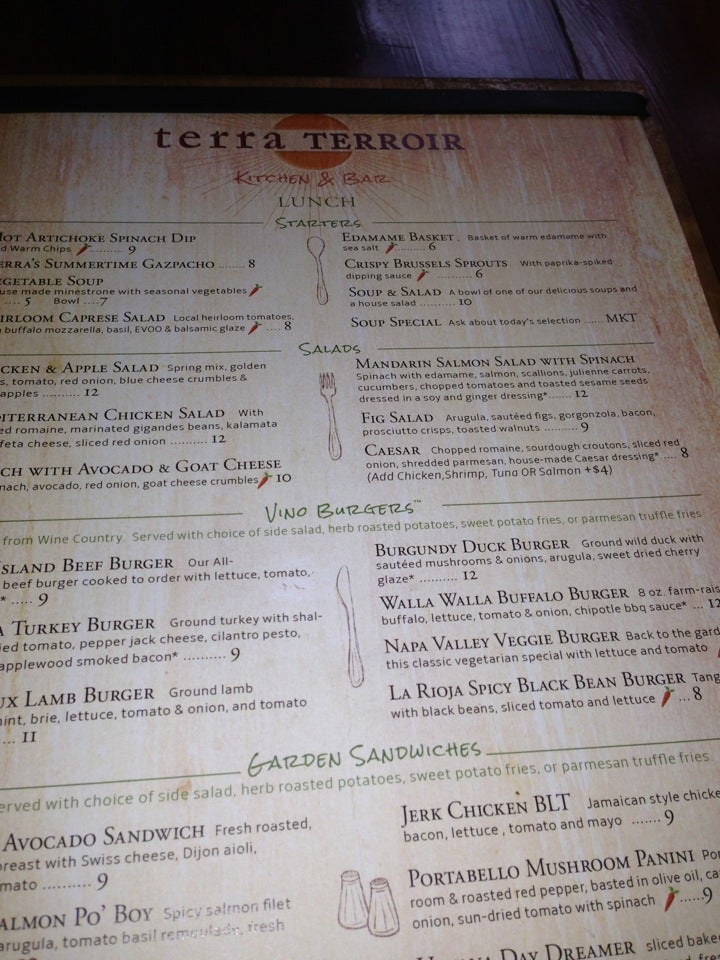 terra TERROIR
KITCHEN & BAR
LUNCH
STARTERS
HOT ARTICHOKE SPINACH DIP
Warm Chips .......... 9
ERRA'S SUMMERTIME GAZPACHO ........ 8
EGETABLE SOUP
use made minestrone with seasonal vegetables
.... 5 Bowl ....7
EIRLOOM CAPRESE SALAD Local heirloom tomatoes,
buffalo mozzarella, basil, EVOO & balsamic glaze .... 8
EDAMAME BASKET . Basket of warm edamame with
sea salt ..........6
CRISPY BRUSSELS SPROUTS With paprika-spiked
dipping sauce .......... 6
SOUP & SALAD A bowl of one of our delicious soups and
a house salad .......... 10
SOUP SPECIAL Ask about today's selection ...... MKT
SALADS
ICKEN & APPLE SALAD Spring mix, golden
s, tomato, red onion, blue cheese crumbles &
apples .......... 12
DITERRANEAN CHICKEN SALAD With
ed romaine, marinated gigandes beans, kalamata
feta cheese, sliced red onion .......... 12
CH WITH AVOCADO & GOAT CHEESE
nach, avocado, red onion, goat cheese crumbles 10
MANDARIN SALMON SALAD WITH SPINACH
Spinach with edamame, salmon, scallions, julienne carrots,
cucumbers, chopped tomatoes and toasted sesame seeds
dressed in a soy and ginger dressing*....... 12
FIG SALAD Arugula, sautéed figs, gorgonzola, bacon,
prosciutto crisps, toasted walnuts .......... 9
CAESAR Chopped romaine, sourdough croutons, sliced red
onion, shredded parmesan, house-made Caesar dressing* .... 8
(Add Chicken,Shrimp, Tuna OR Salmon +$4)
VINO BURGERS™
from Wine Country. Served with choice of side salad, herb roasted potatoes, sweet potato fries, or parmesan truffle fries
ISLAND BEEF BURGER Our All-
beef burger cooked to order with lettuce, tomato,
* ..... 9
A TURKEY BURGER Ground turkey with shal-
ied tomato, pepper jack cheese, cilantro pesto,
applewood smoked bacon* .......... 9
UX LAMB BURGER Ground lamb
mint, brie, lettuce, tomato & onion, and tomato
... 11
BURGUNDY DUCK BURGER Ground wild duck with
sautéed mushrooms & onions, arugula, sweet dried cherry
glaze* .......... 12
WALLA WALLA BUFFALO BURGER 8 oz. farm-rais
buffalo, lettuce, tomato & onion, chipotle bbq sauce* ... 12
NAPA VALLEY VEGGIE BURGER Back to the gard
this classic vegetarian special with lettuce and tomato
LA RIOJA SPICY BLACK BEAN BURGER Tang
with black beans, sliced tomato and lettuce ... 8
GARDEN SANDWICHES
erved with choice of side salad, herb roasted potatoes, sweet potato fries, or parmesan truffle fries
AVOCADO SANDWICH Fresh roasted,
breast with Swiss cheese, Dijon aioli,
mato .......... 9
ALMON PO' BOY Spicy salmon filet
arugula, tomato basil remoulade, fresh
JERK CHICKEN BLT Jamaican style chicke
bacon, lettuce , tomato and mayo ....... 9
PORTABELLO MUSHROOM PANINI Por
room & roasted red pepper, basted in olive oil, ca
onion, sun-dried tomato with spinach .....9
DAY DREAMER sliced bake